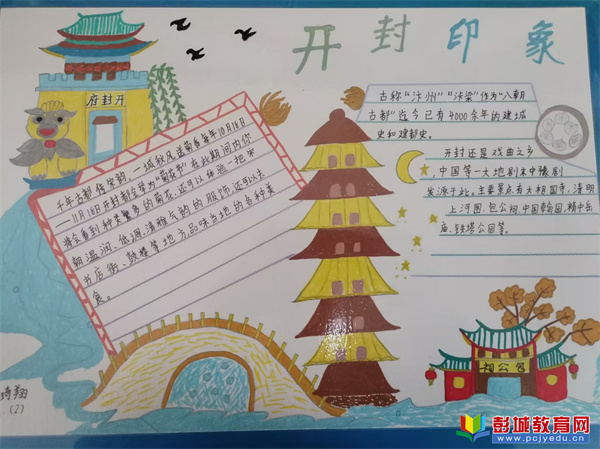 开封印象
开封府
千年古都 传宋韵,一城秋风送菊香每年10月18日
—11月18日开封都会举办"菊花节"在此期间内你
将会看到种类繁多的菊花,还可以体验一把宋
朝温润、低调、清雅气韵的服饰,还可以去
书店街、鼓楼等地方品味当地的各种美
食。
古称"汴州""汴梁"作为"八朝
古都"迄今已有4000余年的建城
史和建都史。
开封还是戏曲之乡
中国第一大地剧末中豫剧
发源于此,主要景点有大相国寺,清明
上河图,包公祠,中国翰园,精中岳
庙,铁塔公园等。
包公祠
琦翔
(2)
彭城教育网
www.pcjyedu.cn